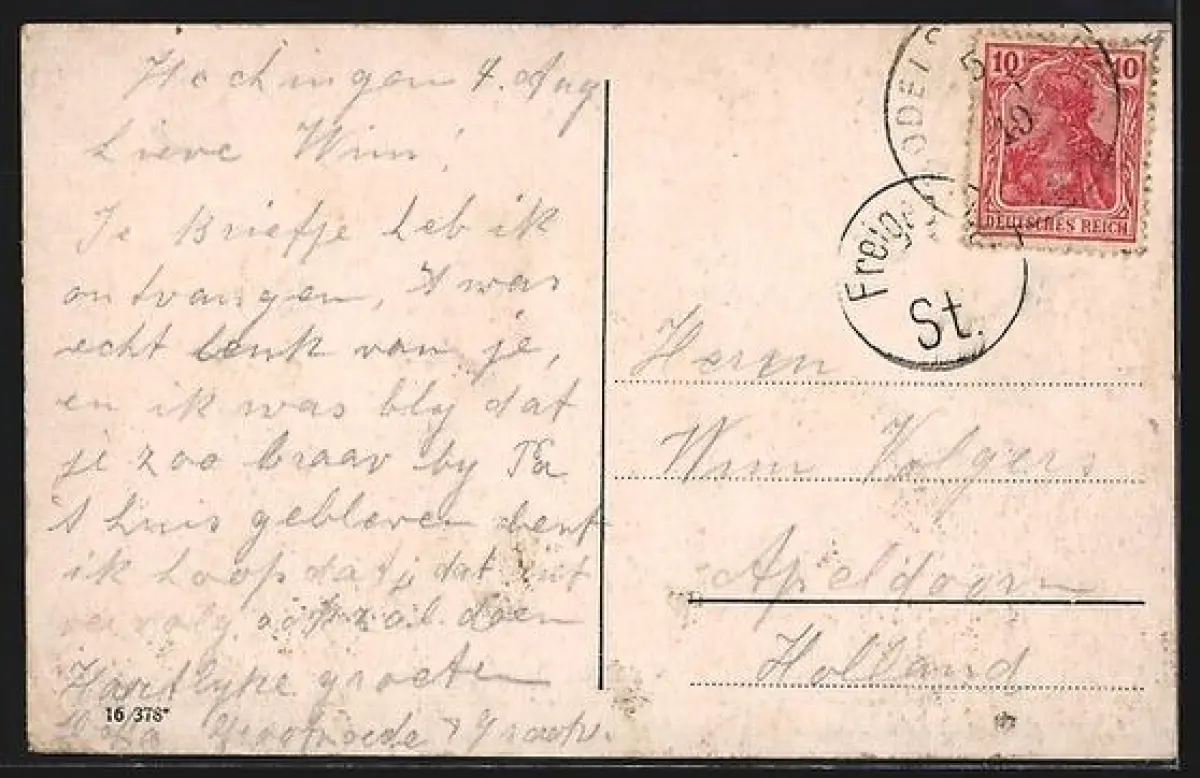 Hochingen 4. Aug
Lieve Wim!
Je Briefje heb ik
ontvangen, 't was
echt leuk van je,
en ik was bly dat
je zoo braav by Pa
't huis gebleven bent
ik hoop dat je dat int
vervolg ook zal doen
Hartlyke groeten
16/378*
10 10
DEUTSCHES REICH
St.
Herrn
Wim Volgers
Apeldoorn
Holland